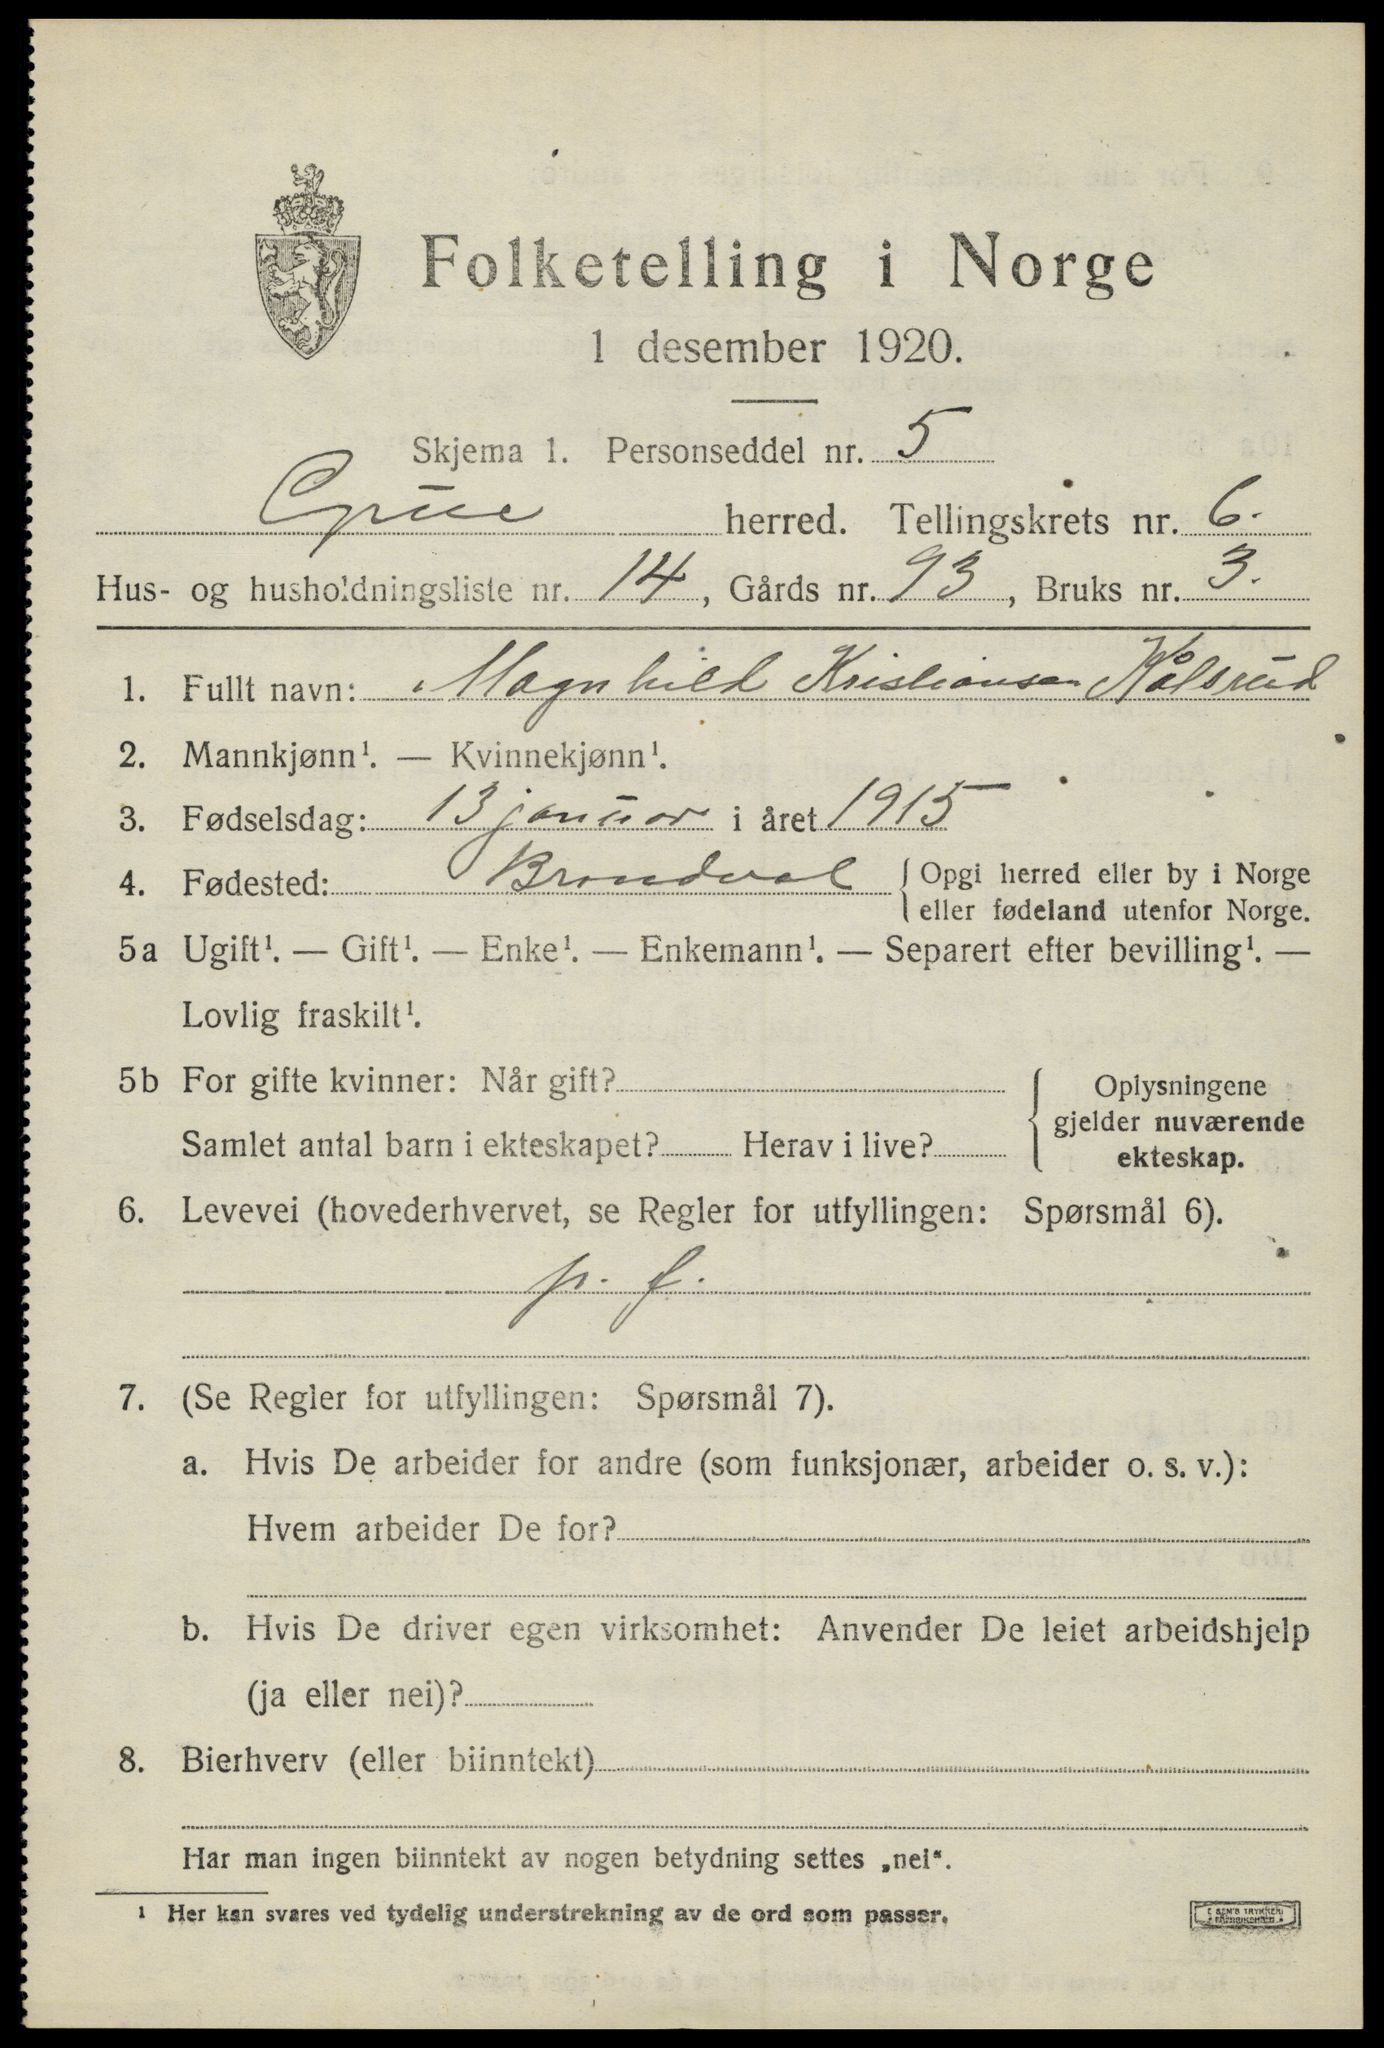 Folketelling i Norge
1 desember 1920.
Skjema 1. Personseddel nr. 5
Grue herred. Tellingskrets nr. 6.
Hus- og husholdningsliste nr. 14, Gårds nr. 93, Bruks nr. 3.
1. Fullt navn: Magnhild Kristiansen Kålsrud
2. Mannkjønn¹. — Kvinnekjønn¹.
3. Fødselsdag: 13 januar i året 1915
4. Fødested: Brandval { Opgi herred eller by i Norge
eller fødeland utenfor Norge.
5a Ugift¹. — Gift¹. — Enke¹. — Enkemann¹. — Separert efter bevilling¹. —
Lovlig fraskilt¹.
5b For gifte kvinner: Når gift?
Samlet antal barn i ekteskapet? Herav i live?
Oplysningene
gjelder nuværende
ekteskap.
6. Levevei (hovederhvervet, se Regler for utfyllingen: Spørsmål 6).
p. f.
7. (Se Regler for utfyllingen: Spørsmål 7).
a. Hvis De arbeider for andre (som funksjonær, arbeider o. s. v.):
Hvem arbeider De for?
b. Hvis De driver egen virksomhet: Anvender De leiet arbeidshjelp
(ja eller nei)?
8. Bierhverv (eller biinntekt)
Har man ingen biinntekt av nogen betydning settes „nei“.
¹ Her kan svares ved tydelig understrekning av de ord som passer.